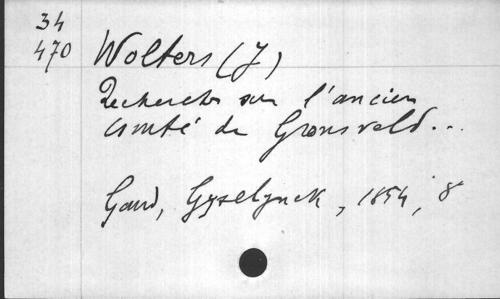 34
470 Wolters (J)
Recherches sur l'ancien
comté de Gronsveld...
Gand, Gyselynck, 1854, 8